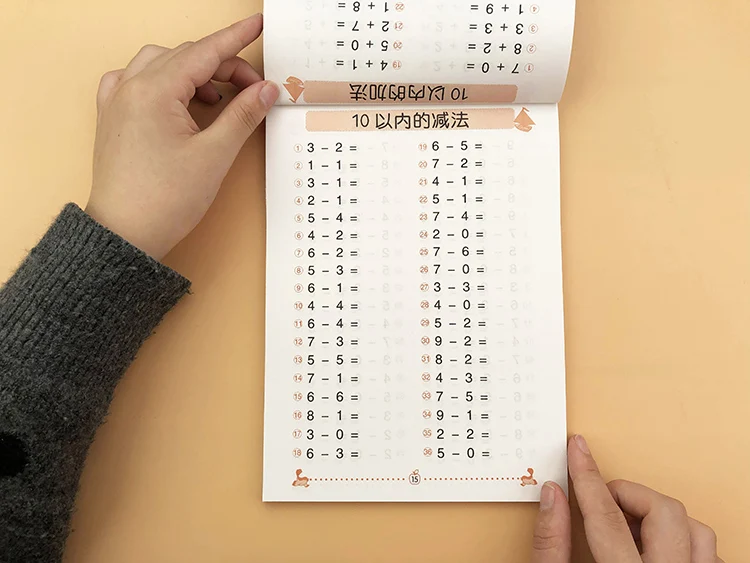 ㉒ 1 + 8 =
④ 1 + 9 =
㉑ 2 + 7 =
③ 3 + 3 =
⑳ 5 + 0 =
② 8 + 2 =
⑲ 4 + 1 =
① 7 + 0 =
10 以内的加法
10 以内的减法
① 3 - 2 =
② 1 - 1 =
③ 3 - 1 =
④ 2 - 1 =
⑤ 5 - 4 =
⑥ 4 - 2 =
⑦ 6 - 2 =
⑧ 5 - 3 =
⑨ 6 - 1 =
⑩ 4 - 4 =
⑪ 6 - 4 =
⑫ 7 - 3 =
⑬ 5 - 5 =
⑭ 7 - 1 =
⑮ 6 - 6 =
⑯ 8 - 1 =
⑰ 3 - 0 =
⑱ 6 - 3 =
⑲ 6 - 5 =
⑳ 7 - 2 =
㉑ 4 - 1 =
㉒ 5 - 1 =
㉓ 7 - 4 =
㉔ 2 - 0 =
㉕ 7 - 6 =
㉖ 7 - 0 =
㉗ 3 - 3 =
㉘ 4 - 0 =
㉙ 5 - 2 =
㉚ 9 - 2 =
㉛ 8 - 2 =
㉜ 4 - 3 =
㉝ 7 - 5 =
㉞ 9 - 1 =
㉟ 2 - 2 =
㊱ 5 - 0 =
15